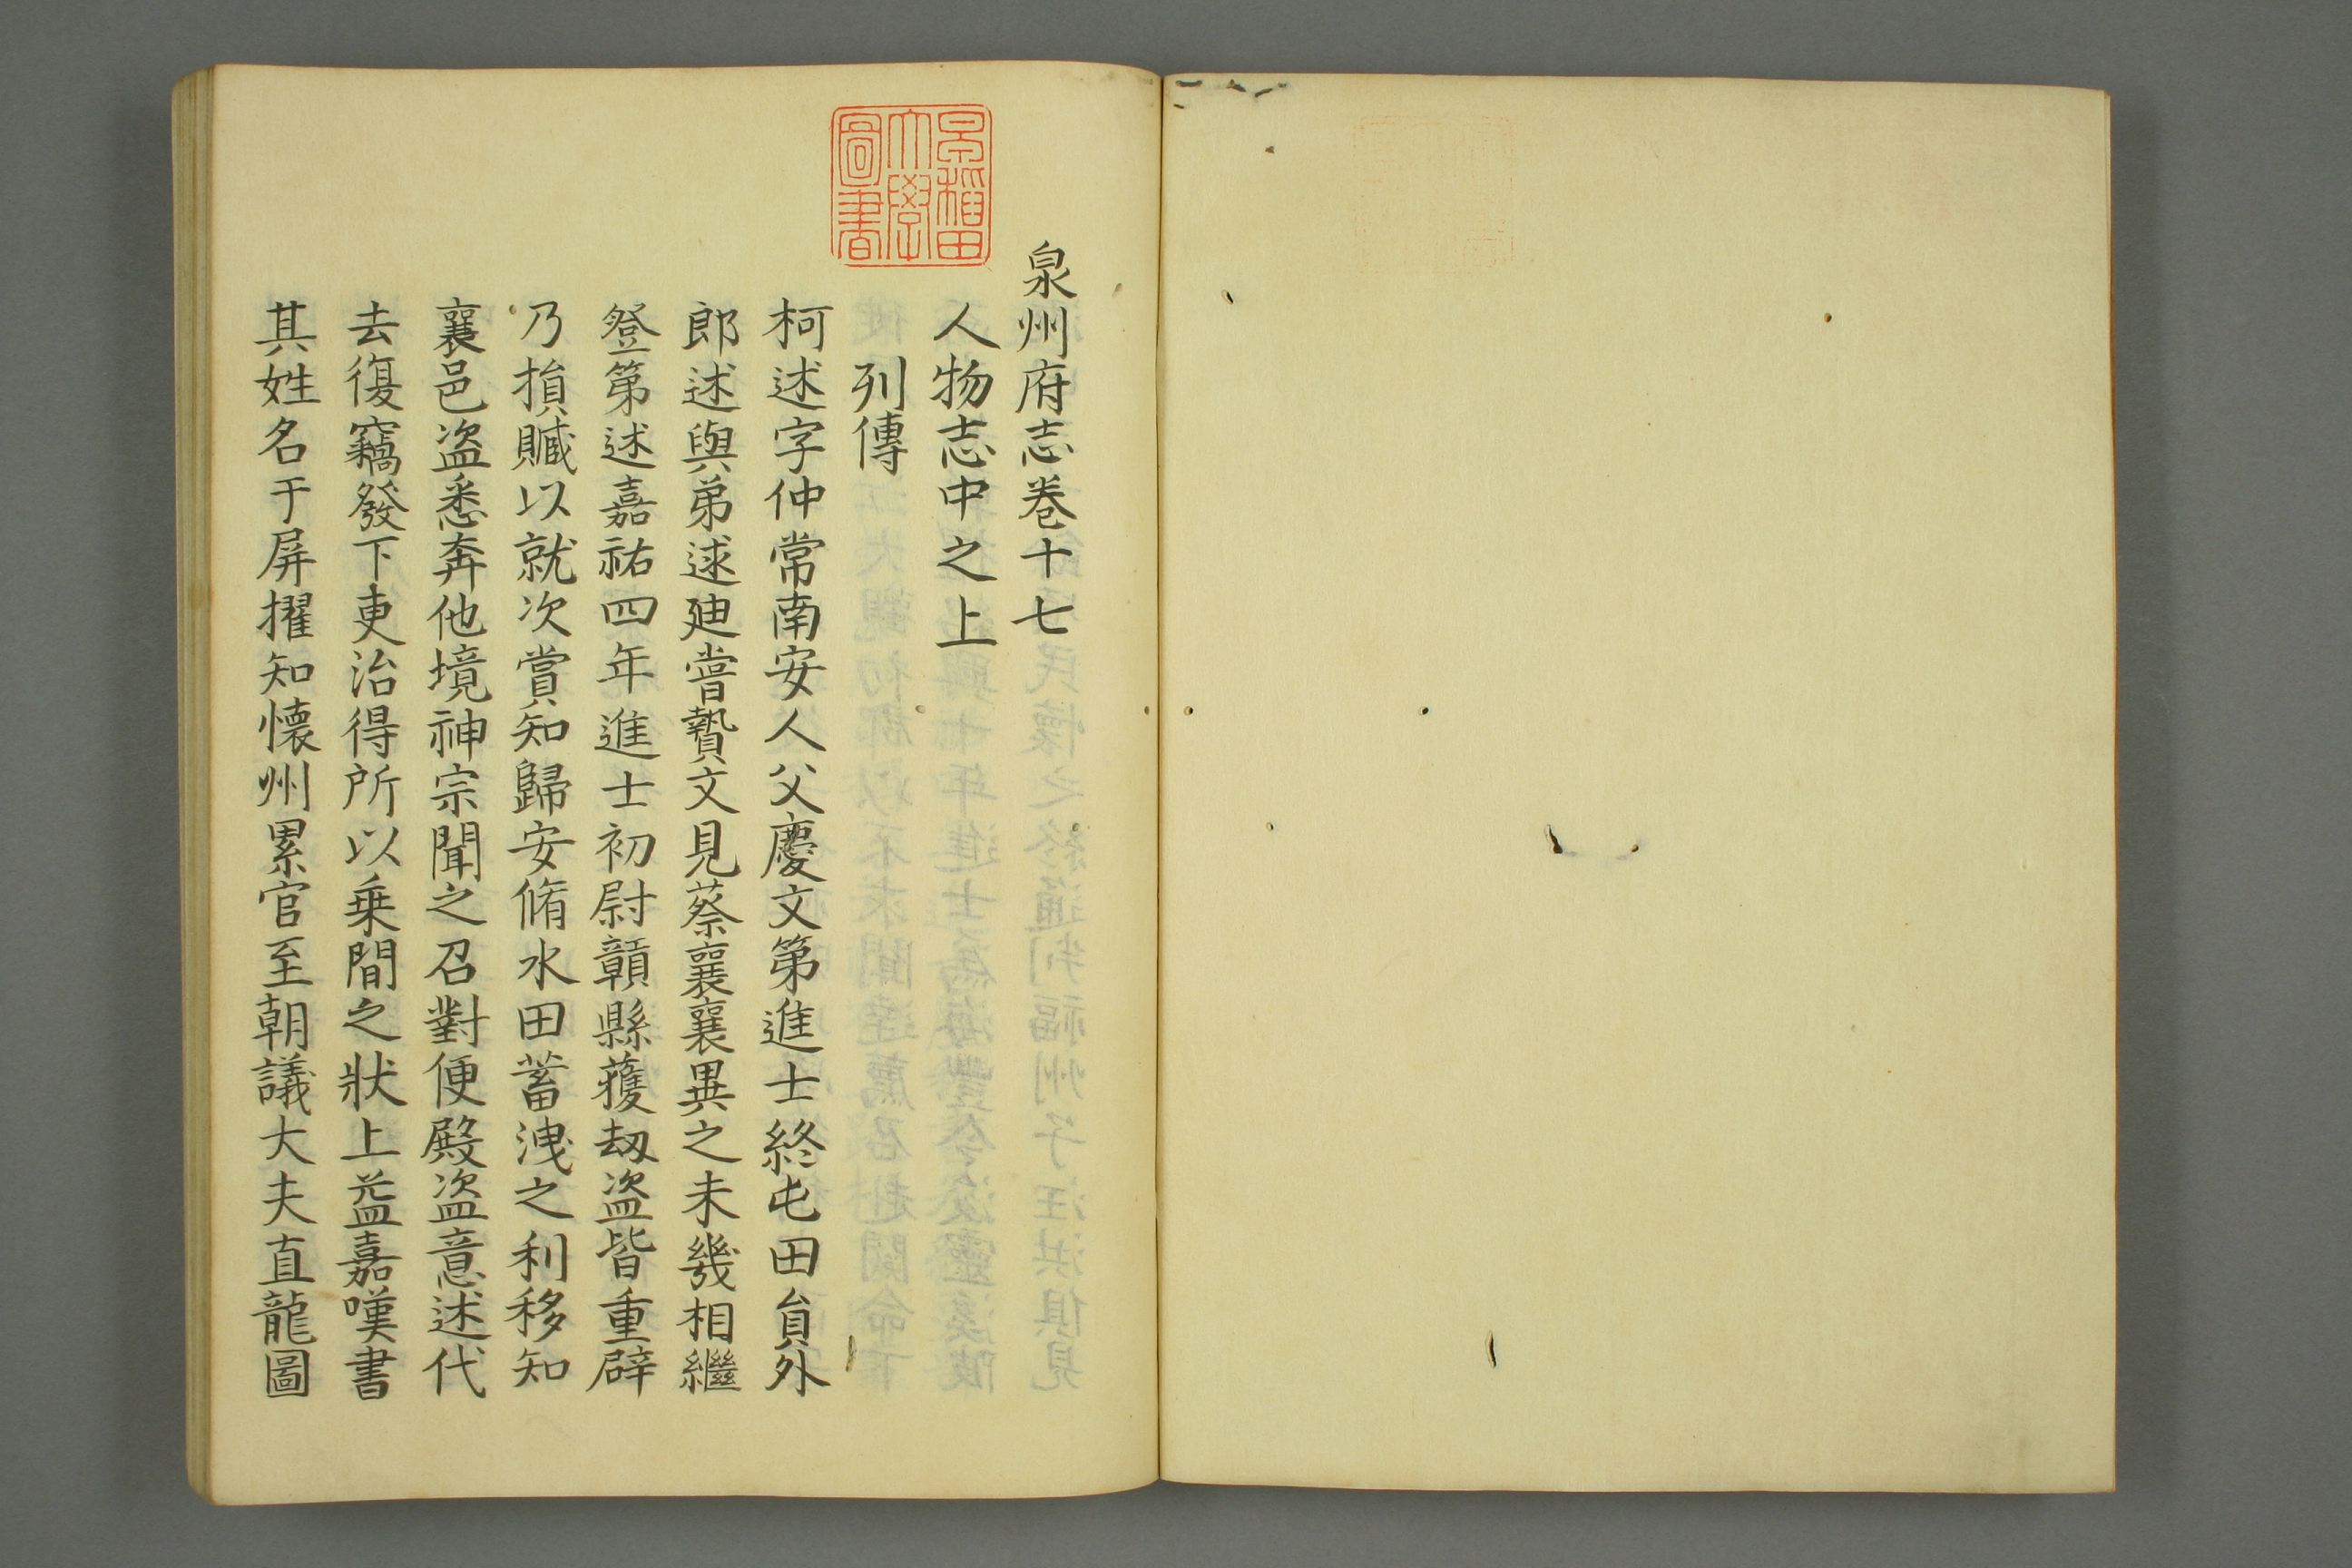 泉州府志卷十七
人物志中之上
列傳
柯述字仲常南安人父慶文第進士終屯田貟外
郎述與弟逑廸嘗贄文見蔡襄襄異之未幾相繼
登第述嘉祐四年進士初尉贑縣蒦刼盗皆重辟
乃損贓以就次賞知歸安脩水田蓄洩之利移知
襄邑盗悉奔他境神宗聞之召對便殿盗意述代
去復竊發下吏治得所以乗間之狀上益嘉嘆書
其姓名于屏擢知懷州累官至朝議大夫直龍圖
早稻田大學圖書